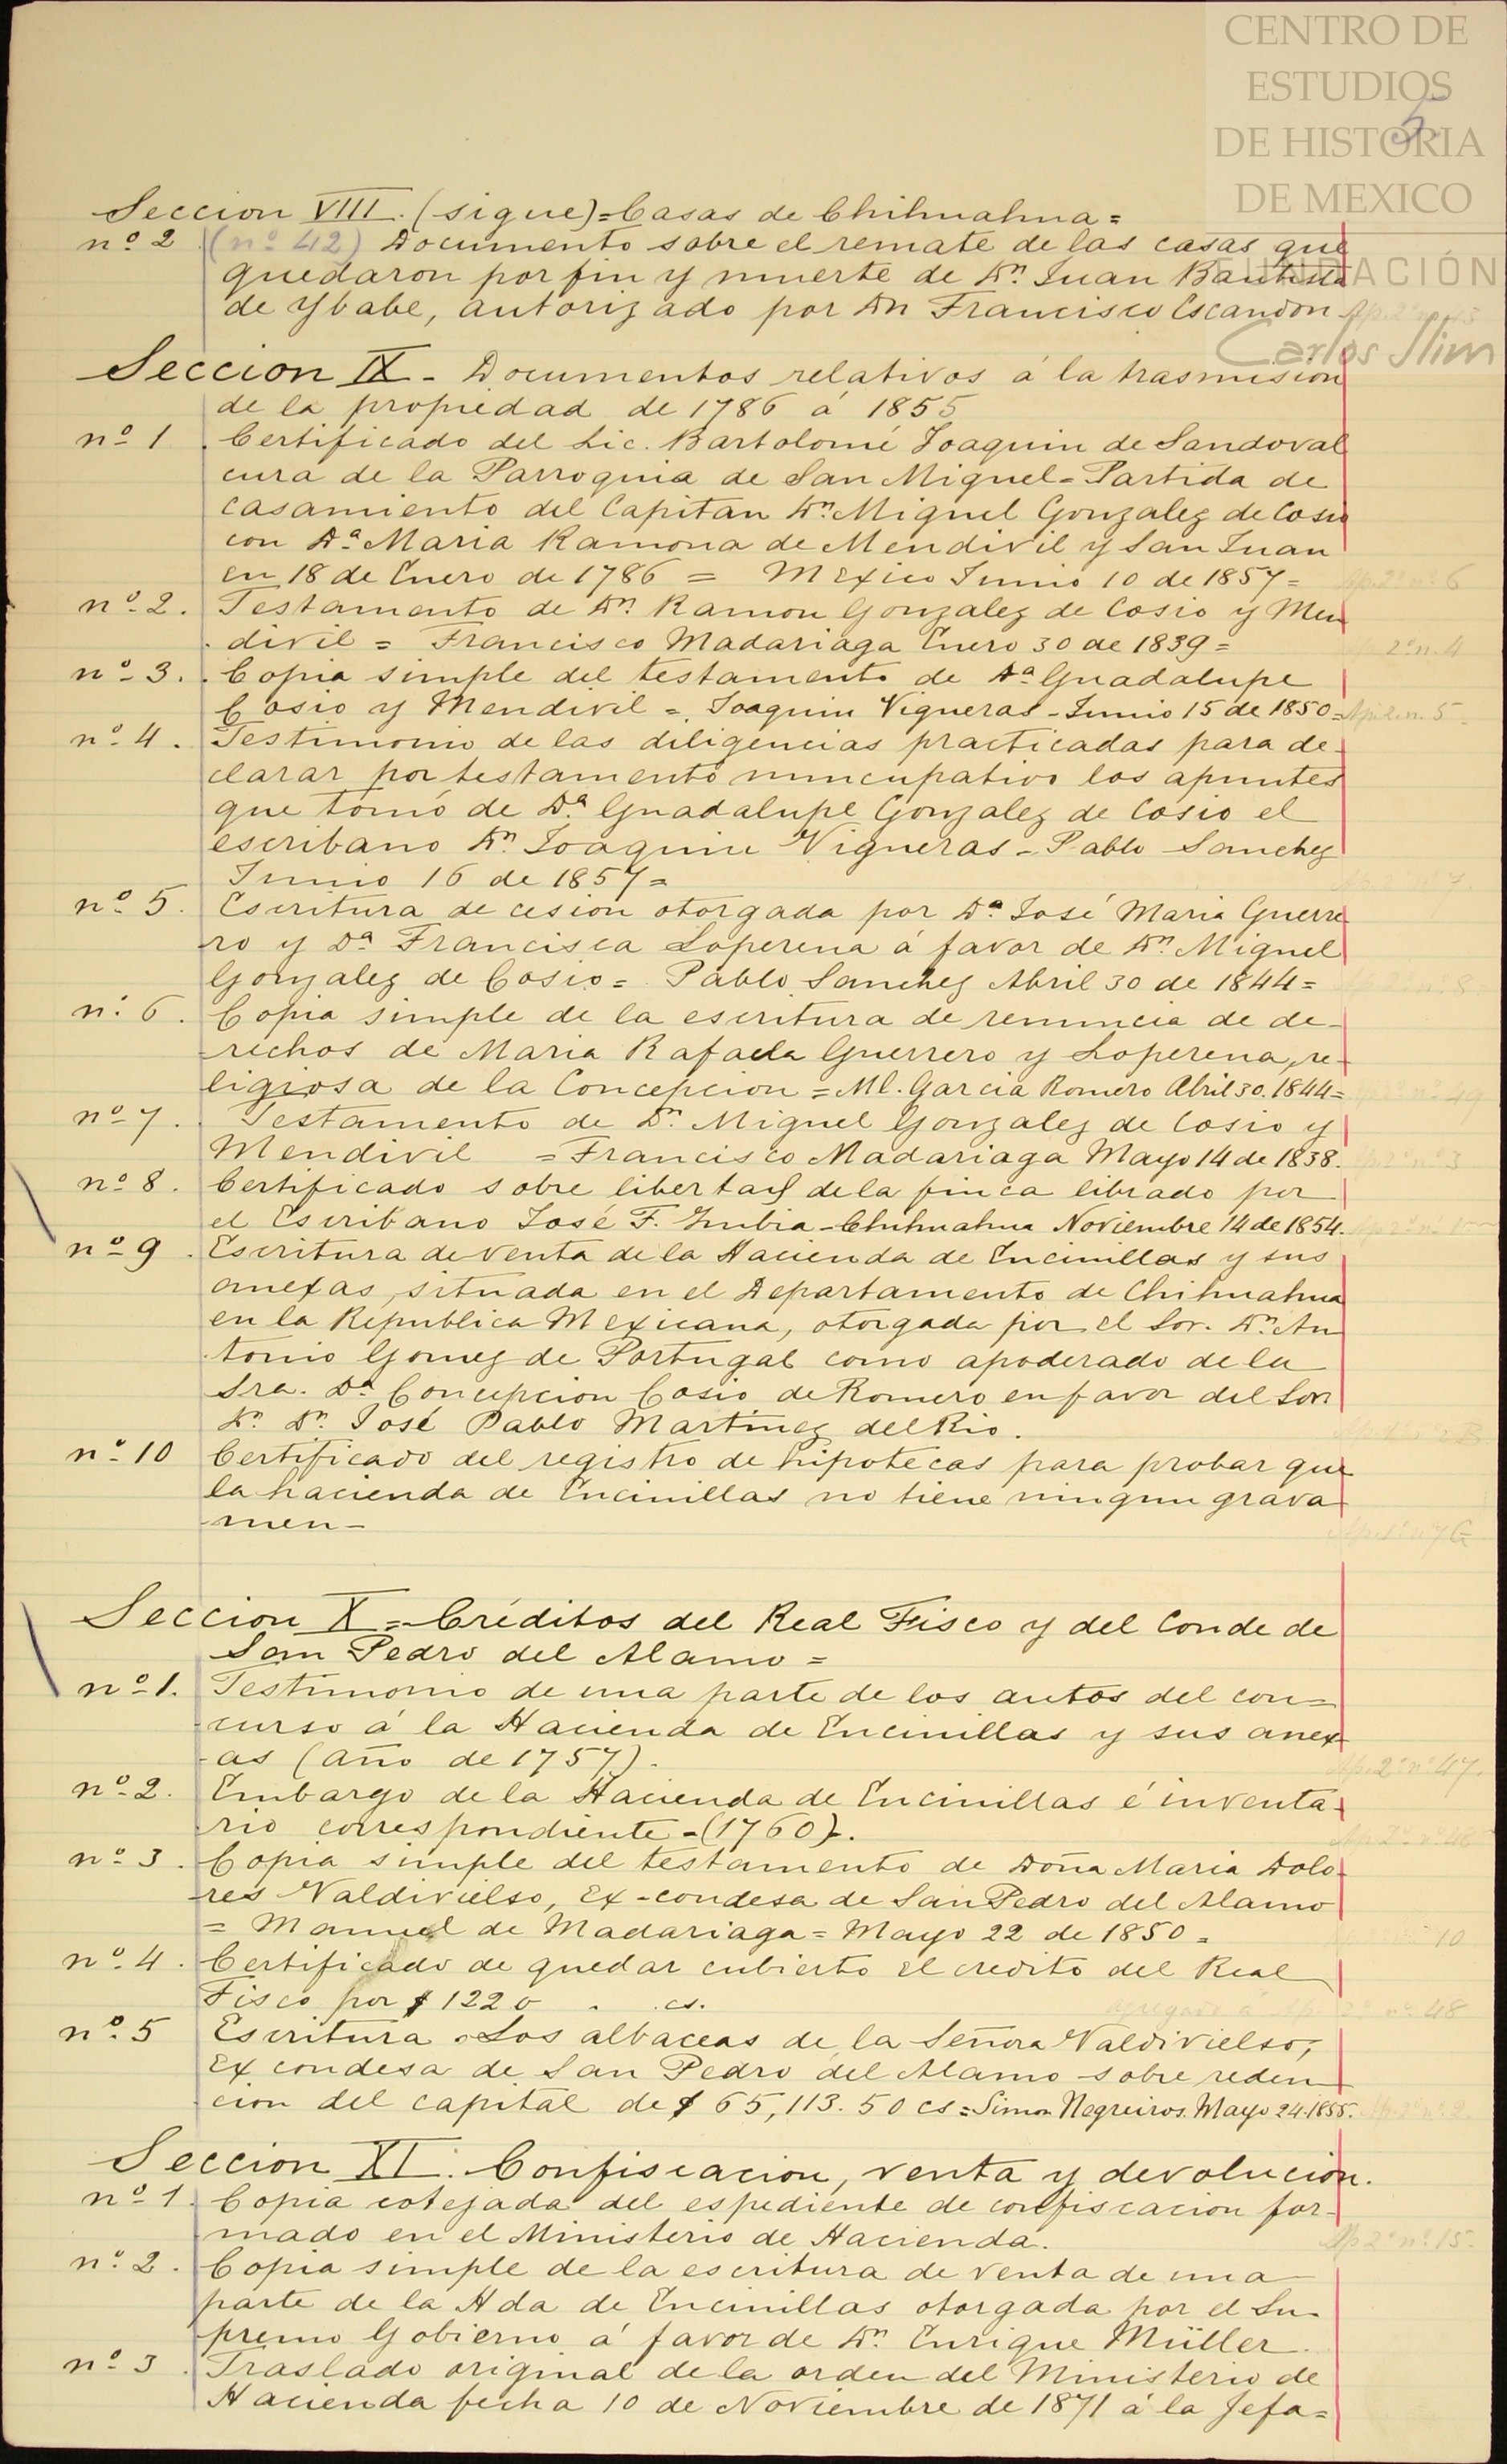 CENTRO DE
ESTUDIOS
DE HISTORIA
DE MEXICO
FUNDACIÓN
Carlos Slim
5
Seccion VIII. (sigue)=Casas de Chihuahua=
nº 2 (nº 42) Documento sobre el remate de las casas que
quedaron por fin y muerte de Dn. Juan Bautista
de Ybabe, autorizado por Dn Francisco Escandon Ap. 2º nº 13
Seccion IX - Documentos relativos á la trasmision
de la propiedad de 1786 á 1855
nº 1 Certificado del Lic. Bartolomé Joaquin de Sandoval
cura de la Parroquia de San Miguel=Partida de
casamiento del Capitan Dn. Miguel Gonzalez de Cosio
con Dª Maria Ramona de Mendivil y San Juan
en 18 de Enero de 1786 = Mexico Junio 10 de 1857= Ap. 2º nº 6
nº 2. Testamento de Dn. Ramon Gonzalez de Cosio y Men
divil = Francisco Madariaga Enero 30 de 1839= Ap. 2º n. 4
nº 3. Copia simple del testamento de Dª Guadalupe
Cosio y Mendivil = Joaquin Vigueras - Junio 15 de 1850= Ap. 2. n. 5
nº 4. Testimonio de las diligencias practicadas para de-
clarar por testamento nuncupativo los apuntes
que tomó de Dª Guadalupe Gonzalez de Cosio el
escribano Dn. Joaquin Vigueras - Pablo Sanchez
Junio 16 de 1857= 7.
nº 5. Escritura de cesion otorgada por Dª José Maria Guerre
ro y Dª Francisca Loperena á favor de Dn. Miguel
Gonzalez de Cosio= Pablo Sanchez Abril 30 de 1844= nº 8
nº 6. Copia simple de la escritura de renuncia de de-
rechos de Maria Rafaela Guerrero y Loperena, re-
ligiosa de la Concepcion = Ml. Garcia Romero Abril 30. 1844= nº 49
nº 7. Testamento de Dn. Miguel Gonzalez de Cosio y
Mendivil = Francisco Madariaga Mayo 14 de 1838. Ap. 2º nº 3
nº 8. Certificado sobre libertad de la finca librado por
el Escribano José F. Zubia - Chihuahua Noviembre 14 de 1854.
nº 9. Escritura de venta de la Hacienda de Encinillas y sus
anexas, situada en el Departamento de Chihuahua
en la Republica Mexicana, otorgada por el Sor. Dn. An
tonio Gomez de Portugal como apoderado de la
Sra. Dª Concepcion Cosio de Romero en favor del Sor
Dr. Dn. José Pablo Martinez del Rio.
nº 10 Certificado del registro de hipotecas para probar que
la hacienda de Encinillas no tiene ningun grava
men-
Seccion X = Créditos del Real Fisco y del Conde de
San Pedro del Alamo =
nº 1. Testimonio de una parte de los autos del con=
curso á la Hacienda de Encinillas y sus anex
as (año de 1757). Ap. 2º nº 47.
nº 2. Embargo de la Hacienda de Encinillas é inventa-
rio correspondiente-(1760). Ap 2º nº 46
nº 3. Copia simple del testamento de Doña Maria Dolo-
res Valdivielso, Ex-condesa de San Pedro del Alamo
= Manuel de Madariaga= Mayo 22 de 1850= 10
nº 4. Certificado de quedar cubierto el credito del Real
Fisco por $ 1220 . . cs. agregado á Ap. 2º nº 48
nº 5 Escritura Los albaceas de la Señora Valdivielso,
Ex condesa de San Pedro del Alamo sobre reden
cion del capital de $ 65,113.50 cs=Simon Negreiros. Mayo 24.1855.
Seccion XI. Confiscacion, venta y devolucion.
nº 1. Copia cotejada del espediente de confiscacion for-
mado en el Ministerio de Hacienda. Ap 2º nº 15.
nº 2. Copia simple de la escritura de venta de una
parte de la Hda de Encinillas otorgada por el Su-
premo Gobierno á favor de Dn. Enrique Müller.
nº 3. Traslado original de la orden del Ministerio de
Hacienda fecha 10 de Noviembre de 1871 á la Jefa=